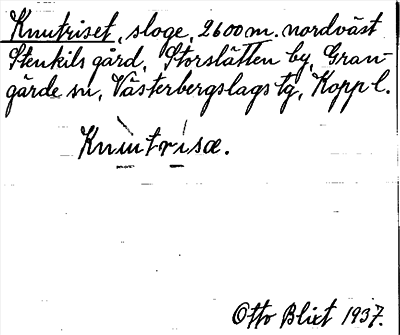 Knutriset, sloge, 2600 m. nordväst
Stenkils gård, Storslätten by, Gran-
gärde sn, Västerbergslags tg, Kopp l.
Knutrisæ.
Otto Blixt 1937.